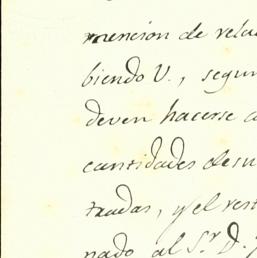 mencion de relac
biendo V., segun
deven hacerse a
cantidades desu
tradas, y el rest
nado al S.r D.